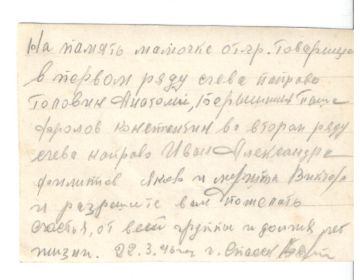 На память мамочке от гр. товарищей
в первом ряду слева направо
Головин Анатолий, 
Фролов Константин во втором ряду
слева направо Иван Александра
Филипов Яков и Виктор
и разрешите вам пожелать
счастья, от всей группы и долгих лет
жизни. 22.3. г. Спасск